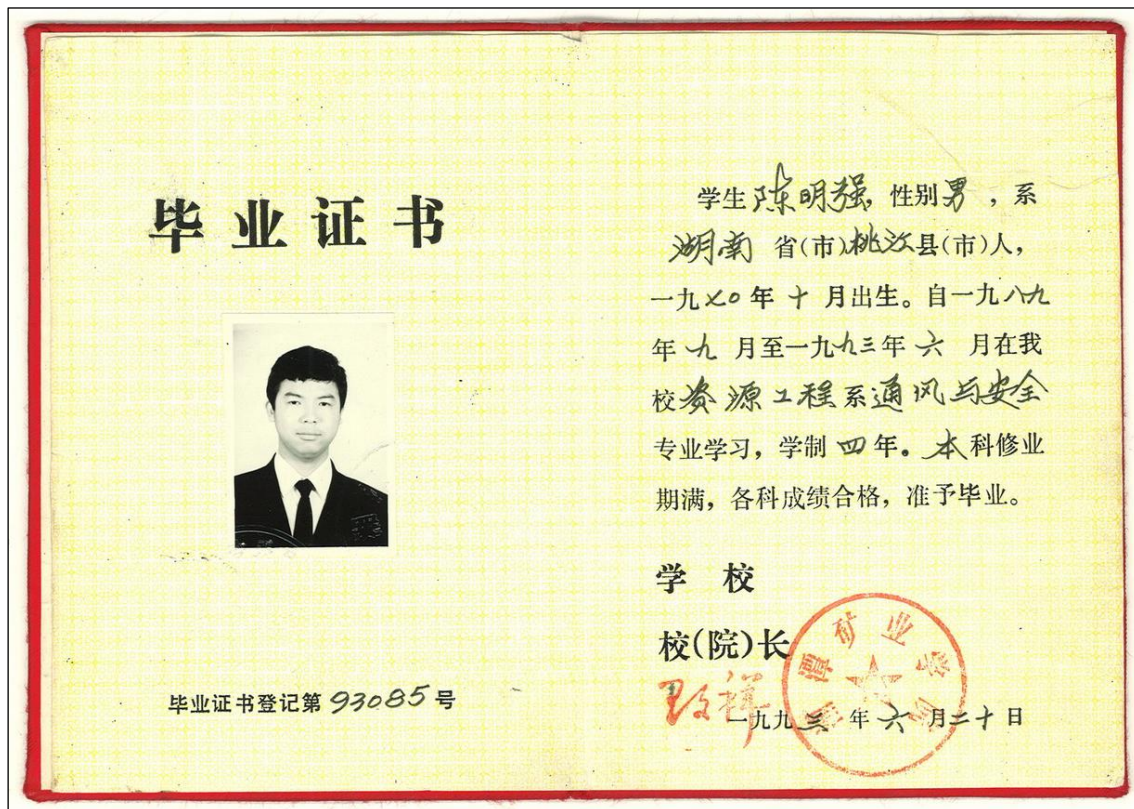 毕业证书
毕业证书登记第 93085 号
学生陈明强,性别男,系
湖南省(市)桃江县(市)人,
一九七〇年十月出生。自一九八九
年九月至一九九三年六月在我
校资源工程系通风与安全
专业学习,学制四年。本科修业
期满,各科成绩合格,准予毕业。
学校
校(院)长
湘潭矿业学院
一九九三年六月二十日